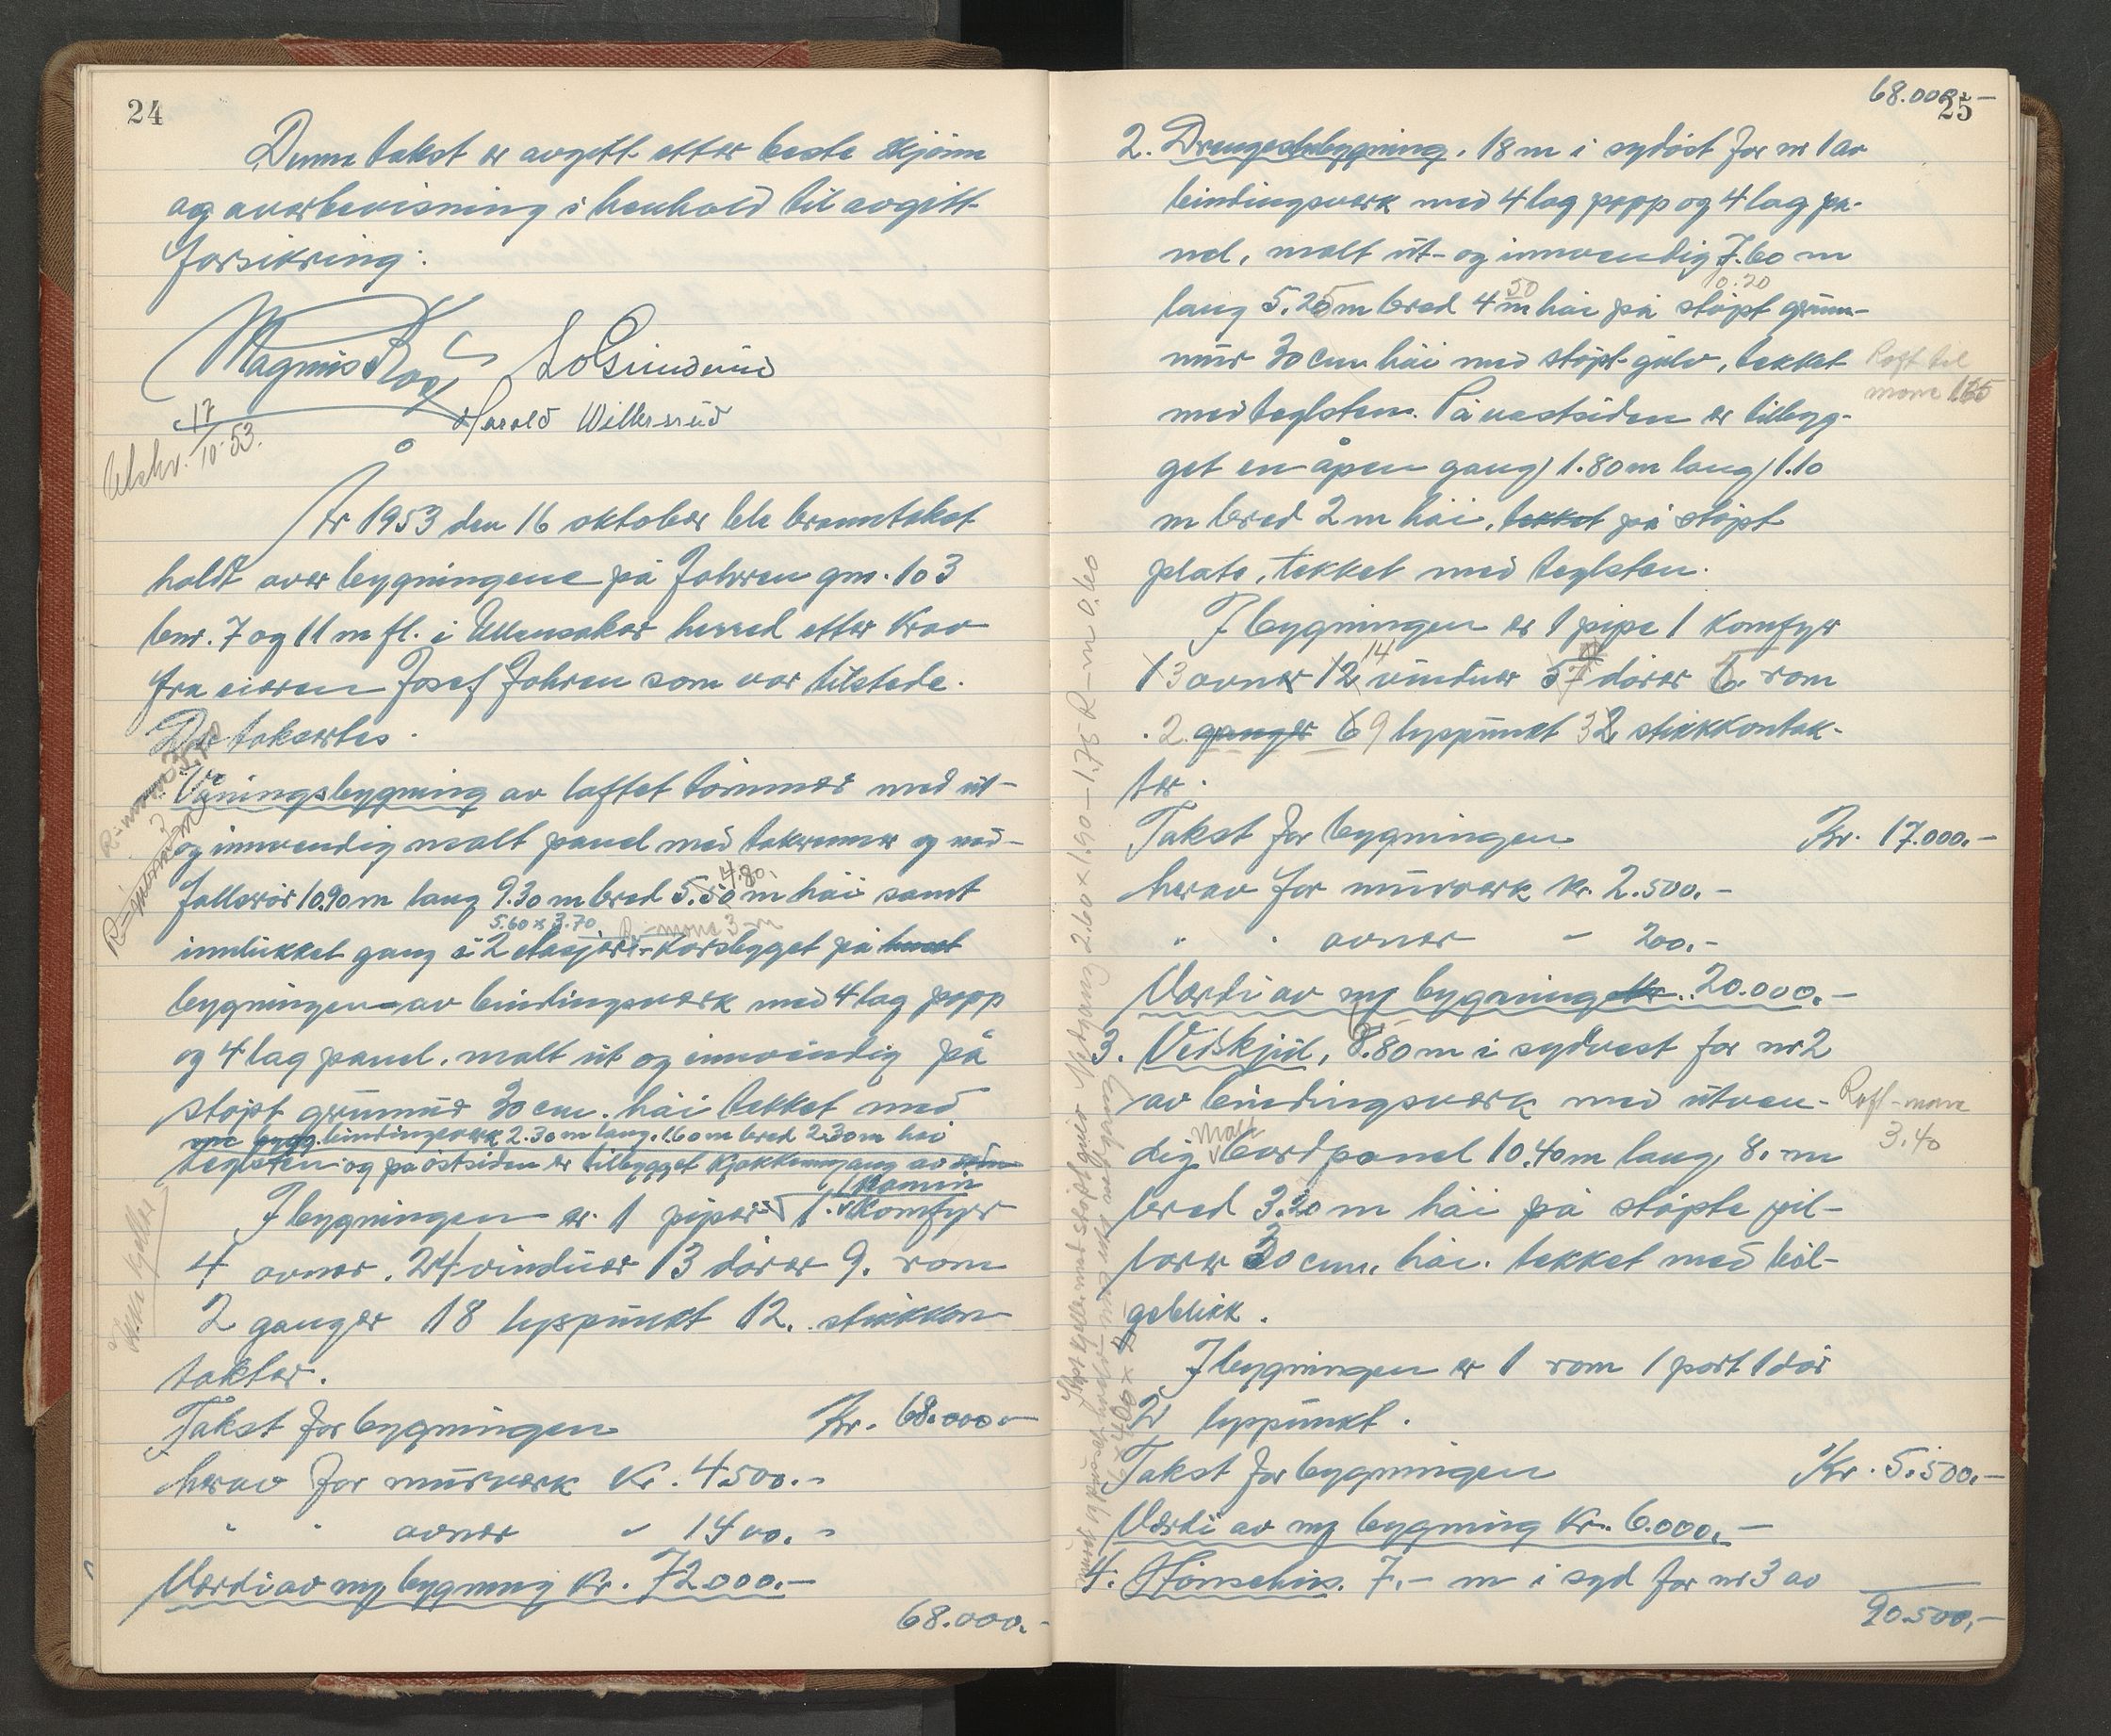 24
Denne takst er avgitt etter beste skjönn
og overbevisning i henhold til avgitt
forsikring:
Magnus
Harald Willersrud
Utskr. 17/10-53.
År 1953 den 16 oktober ble branntakst
holdt over bygningene på Johren gnr. 103
bnr. 7 og 11 m fl. i Ullensaker herred etter krav
fra eieren Josef Johren som var tilstede.
Der taksertes.
Våningsbygning av laftet tömmer med ut-
og innvendig malt panel med takrenner og ned-
fallsrör 10.90 m lang 9.30 m bred 5.50 m höi samt
4.80.
5.60 x 3.70. R.-möne 3 m
innlukket gang i 2 etasjer-korsbygget på huset
bygningen-av bindingsverk med 4 lag papp
og 4 lag panel, malt ut og innvendig på
stöpt grunnmur 30 cm. höi tekket med
bindingsverk 2.30 m lang, 1.60 m bred 2.30 m höi
teglsten og på östsiden er tilbygget kjökkengang av
1 kamin
I bygningen er 1 piper 1 komfyr
4 ovner. 24 vinduer 13 dörer 9. rom
2 ganger 18 lyspunkt 12. stikkkon
takter.
Takst for bygningen Kr. 68.000.-
herav for murverk Kr. 4.500.-
" " ovner - 1400.-
Verdi av ny bygning Kr. 72.000.-
68.000.-
Ikke kjeller
68.000.-
25
2. Drengestubygning. 18 m i sydöst for nr 1 av
bindingsverk med 4 lag papp og 4 lag pa-
nel, malt ut- og innvendig 7.60 m
10.20
lang 5.25 m bred 4 m höi på stöpt grunn-
50
mur 30 cm höi med stöpt gulv, tekket
Loft til
möne 1.65
med teglsten. På vestsiden er tilbyg-
get en åpen gang) 1.80 m lang) 1.10
m bred 2 m höi, tekket på stöpt
plate, tekket med teglsten.
I bygningen er 1 pipe 1 komfyr
14
1 3 ovner 12 vinduer 5 7 dörer 6 rom
. 2 ganger 6 9 lyspunkt 3 2 stikkkontak-
ter.
Takst for bygningen Kr. 17.000.-
herav for murverk kr. 2.500.-
" " ovner - 200.-
Verdi av ny bygning kr. 20.000.-
3. Vedskjul, 8.80 m i sydvest for nr 2
av bindingsverk med utven-
Loft-möne
3.40
malt
dig bordpanel 10.40 m lang, 8. m
bred 3.20 m höi på stöpte pil-
lorer 30 cm. höi. tekket med böl-
geblikk.
I bygningen er 1 rom 1 port 1 dör
2 lyspunkt.
Takst for bygningen Kr. 5.500.-
Verdi av ny bygning Kr. 6.000.-
4. Hönsehus. 7.- m i syd for nr 3 av
90.500.-